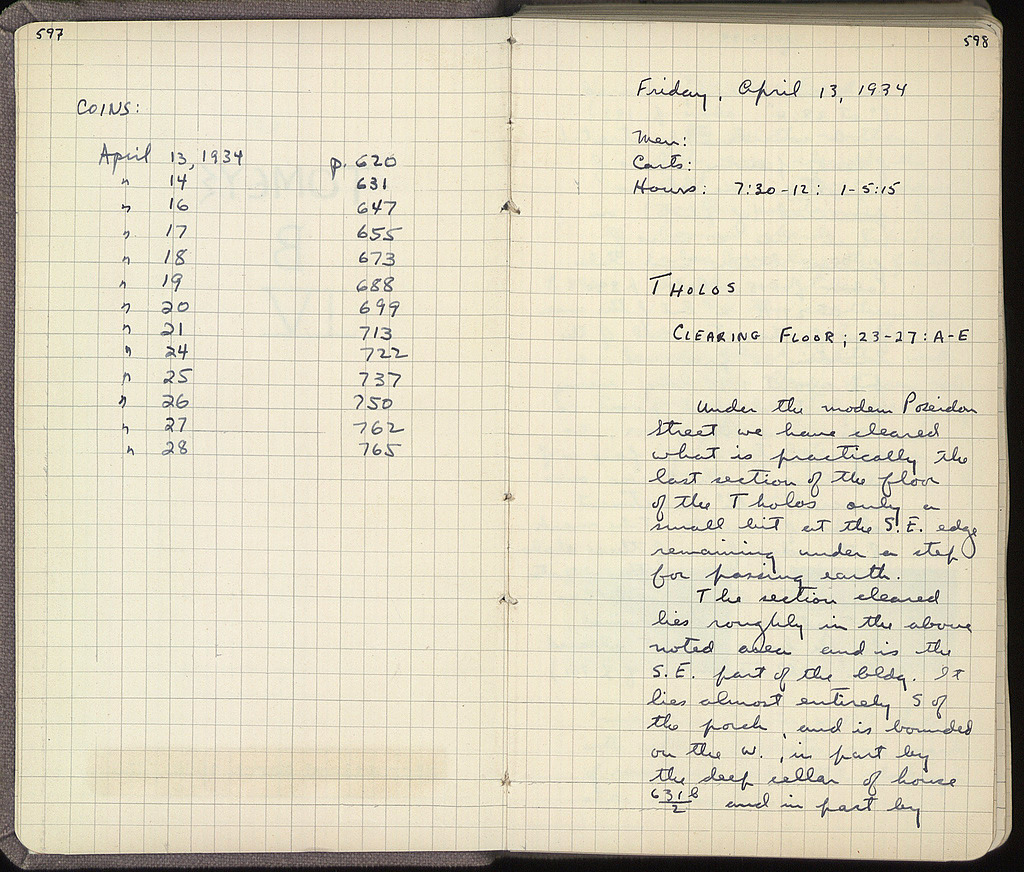 597
COINS:
April 13, 1934 p. 620
" 14 631
" 16 647
" 17 655
" 18 673
" 19 688
" 20 699
" 21 713
" 24 722
" 25 737
" 26 750
" 27 762
" 28 765
598
Friday, April 13, 1934
Men:
Carts:
Hours: 7:30-12: 1-5:15
THOLOS
CLEARING FLOOR; 23-27: A-E
Under the modern Poseidon
Street we have cleared
what is practically the
last section of the floor
of the Tholos only a
small bit at the S.E. edge
remaining under a step
for passing earth.
The section cleared
lies roughly in the above
noted area and is the
S.E. part of the bldg. It
lies almost entirely S of
the porch, and is bounded
on the W., in part by
the deep cellar of house
631b/2 and in part by